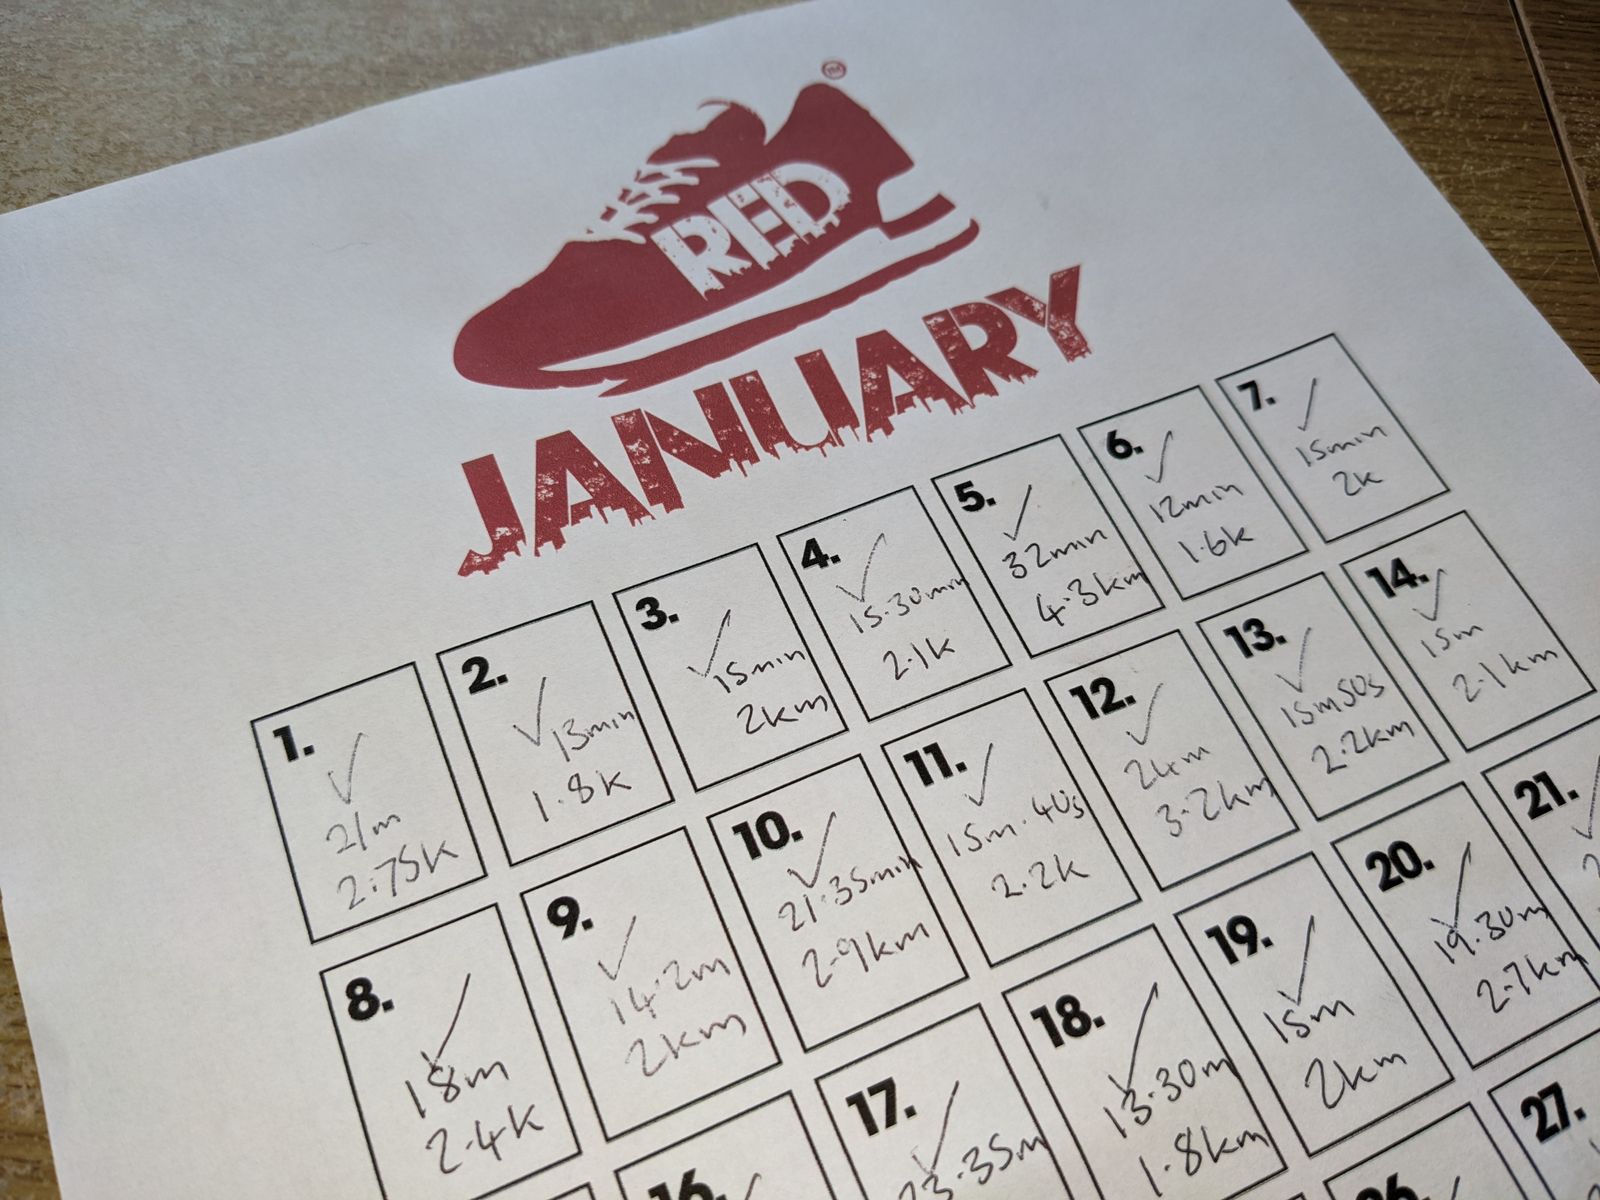 RED
JANUARY
1.
21m
2.75k
2.
13min
1.8k
3.
15min
2km
4.
15.30min
2.1k
5.
32min
4.3km
6.
12min
1.6k
7.
15min
2k
8.
18m
2.4k
9.
14.2m
2km
10.
21.35min
2.9km
11.
15m.40s
2.2k
12.
24m
3.2km
13.
15m50s
2.2km
14.
15m
2.1km
16.
17.
23.35m
18.
13.30m
1.8km
19.
15m
2km
20.
19.30m
2.7km
21.
26.
27.